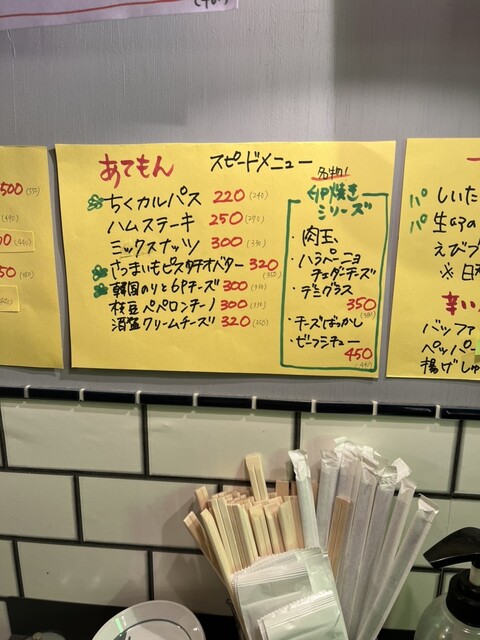 500
50
あてもん スピードメニュー
ちくカルパス 220 (240)
ハムステーキ 250 (290)
ミックスナッツ 300 (330)
さつまいもピスタチオバター 320 (350)
韓国のりと6Pチーズ 300 (330)
枝豆ペペロンチーノ 300 (330)
酒盗クリームチーズ 320 (350)
名物!
卵焼き
シリーズ
・肉玉、
・ハラペーニョ
チェダーチーズ
・デミグラス
350
・チーズばっかし
・ビーフシチュー
450
しいた
えびプ
※日
辛い
バッファ
ペッパー
揚げしゅ